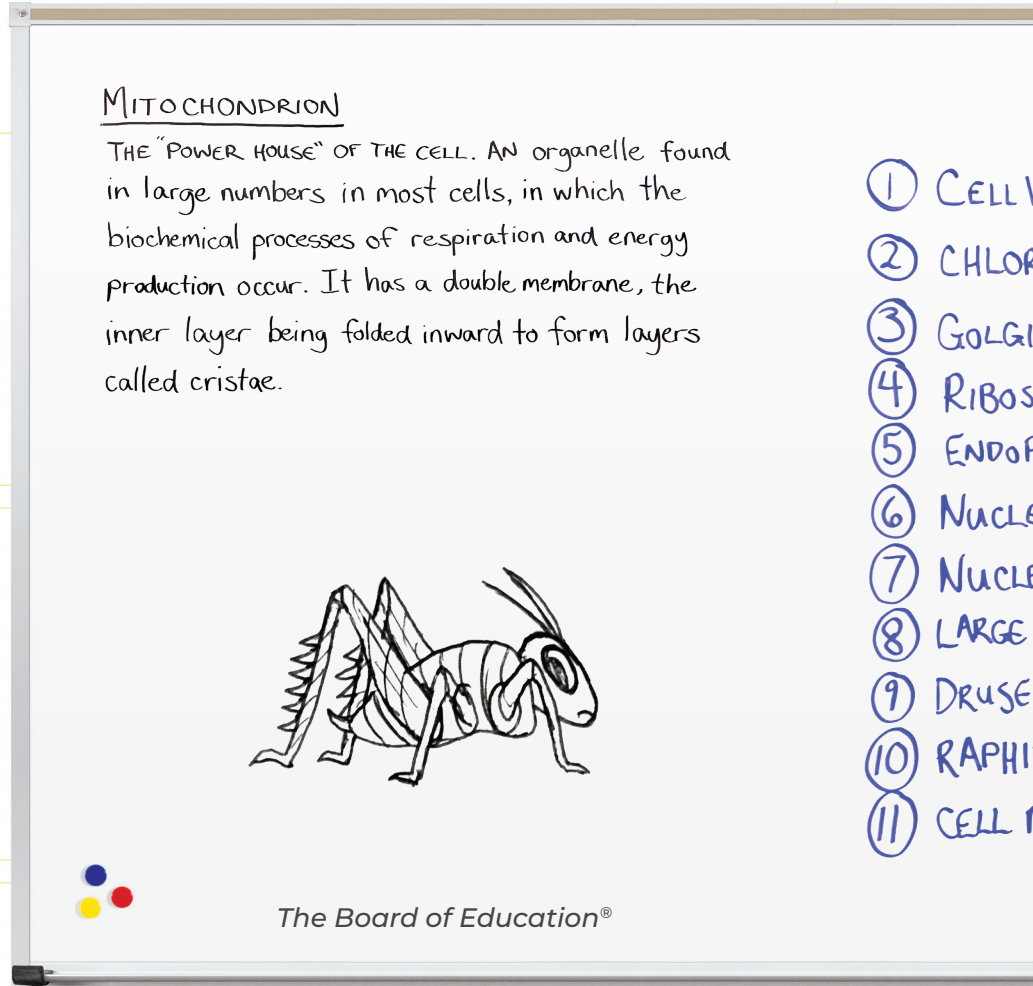 MITOCHONDRION
THE "POWER HOUSE" OF THE CELL. AN organelle found
in large numbers in most cells, in which the
biochemical processes of respiration and energy
production occur. It has a double membrane, the
inner layer being folded inward to form layers
called cristae.
1 CELL
2
3 GOLGI
4
5
6
7
8 LARGE
9 DRUSE
10
11 CELL
The Board of Education®